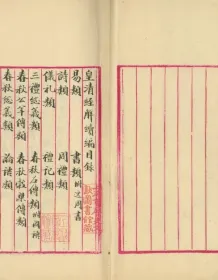 皇清經解續編目錄
易類　書類附逸周書
詩類　周禮類
儀禮類　禮記類
三禮總義類　春秋左傳類附國語
春秋公羊傳類　春秋穀梁類
春秋總義類　論語類